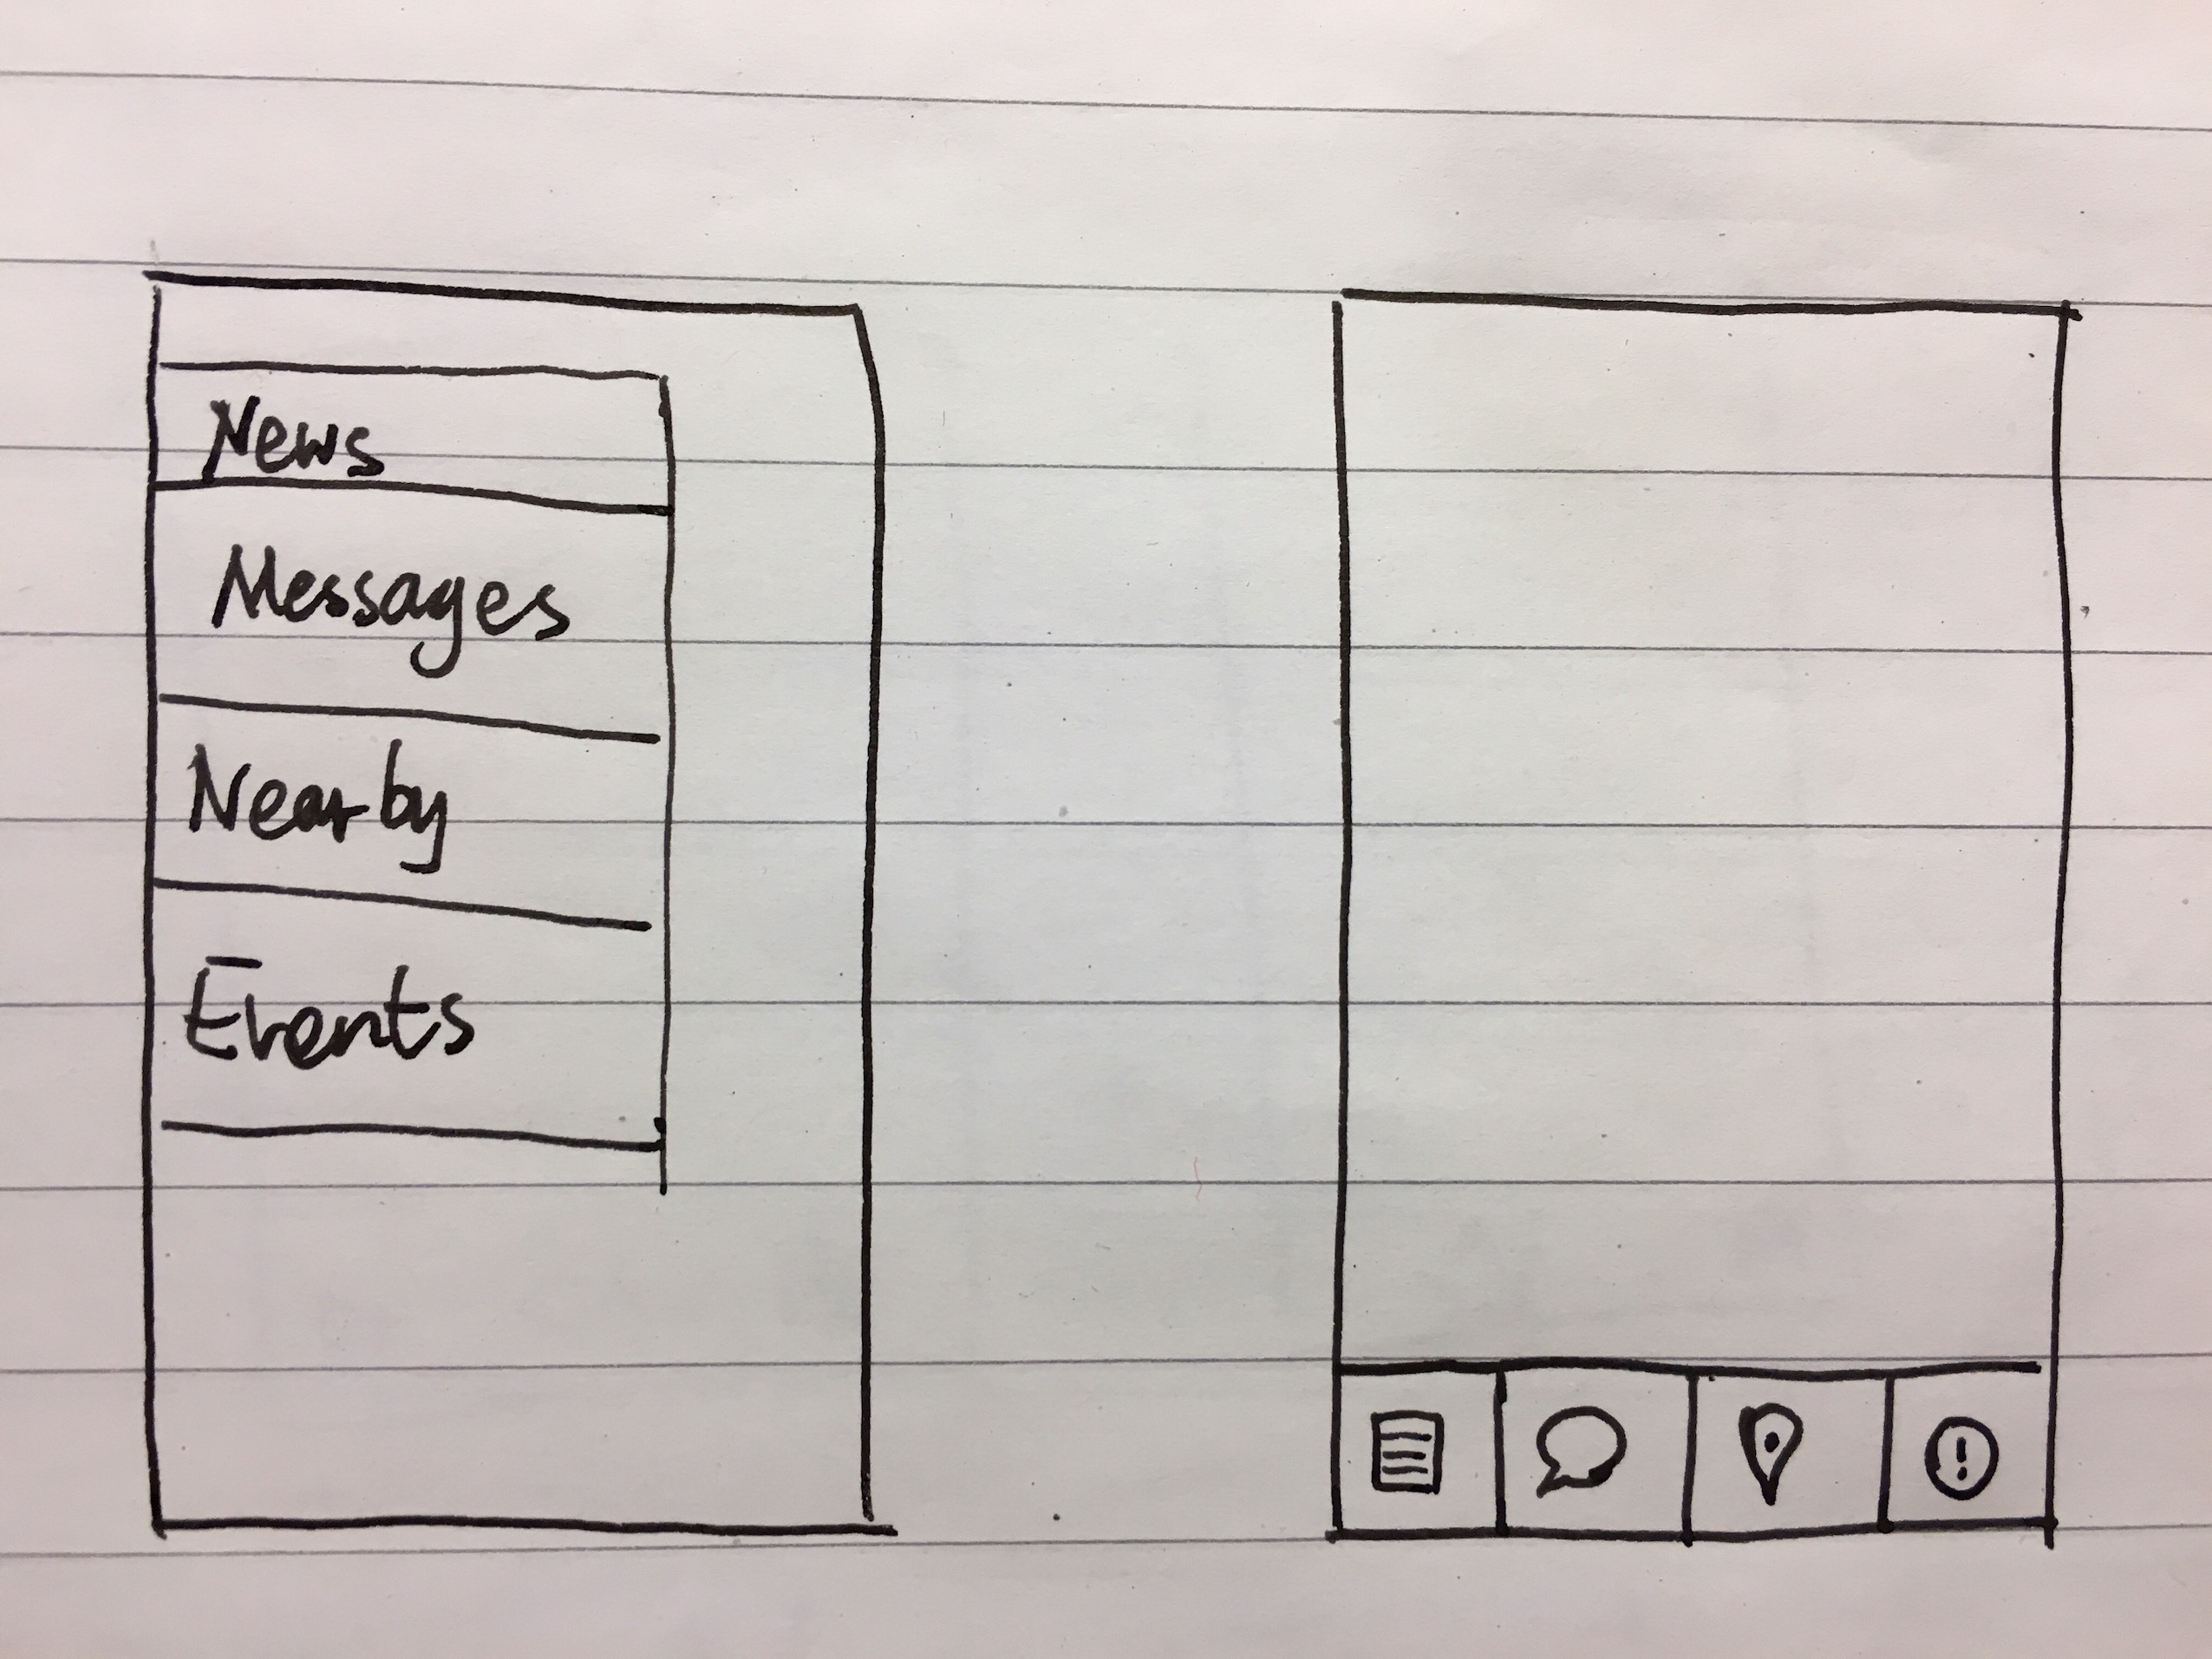 News
Messages
Nearby
Events
!